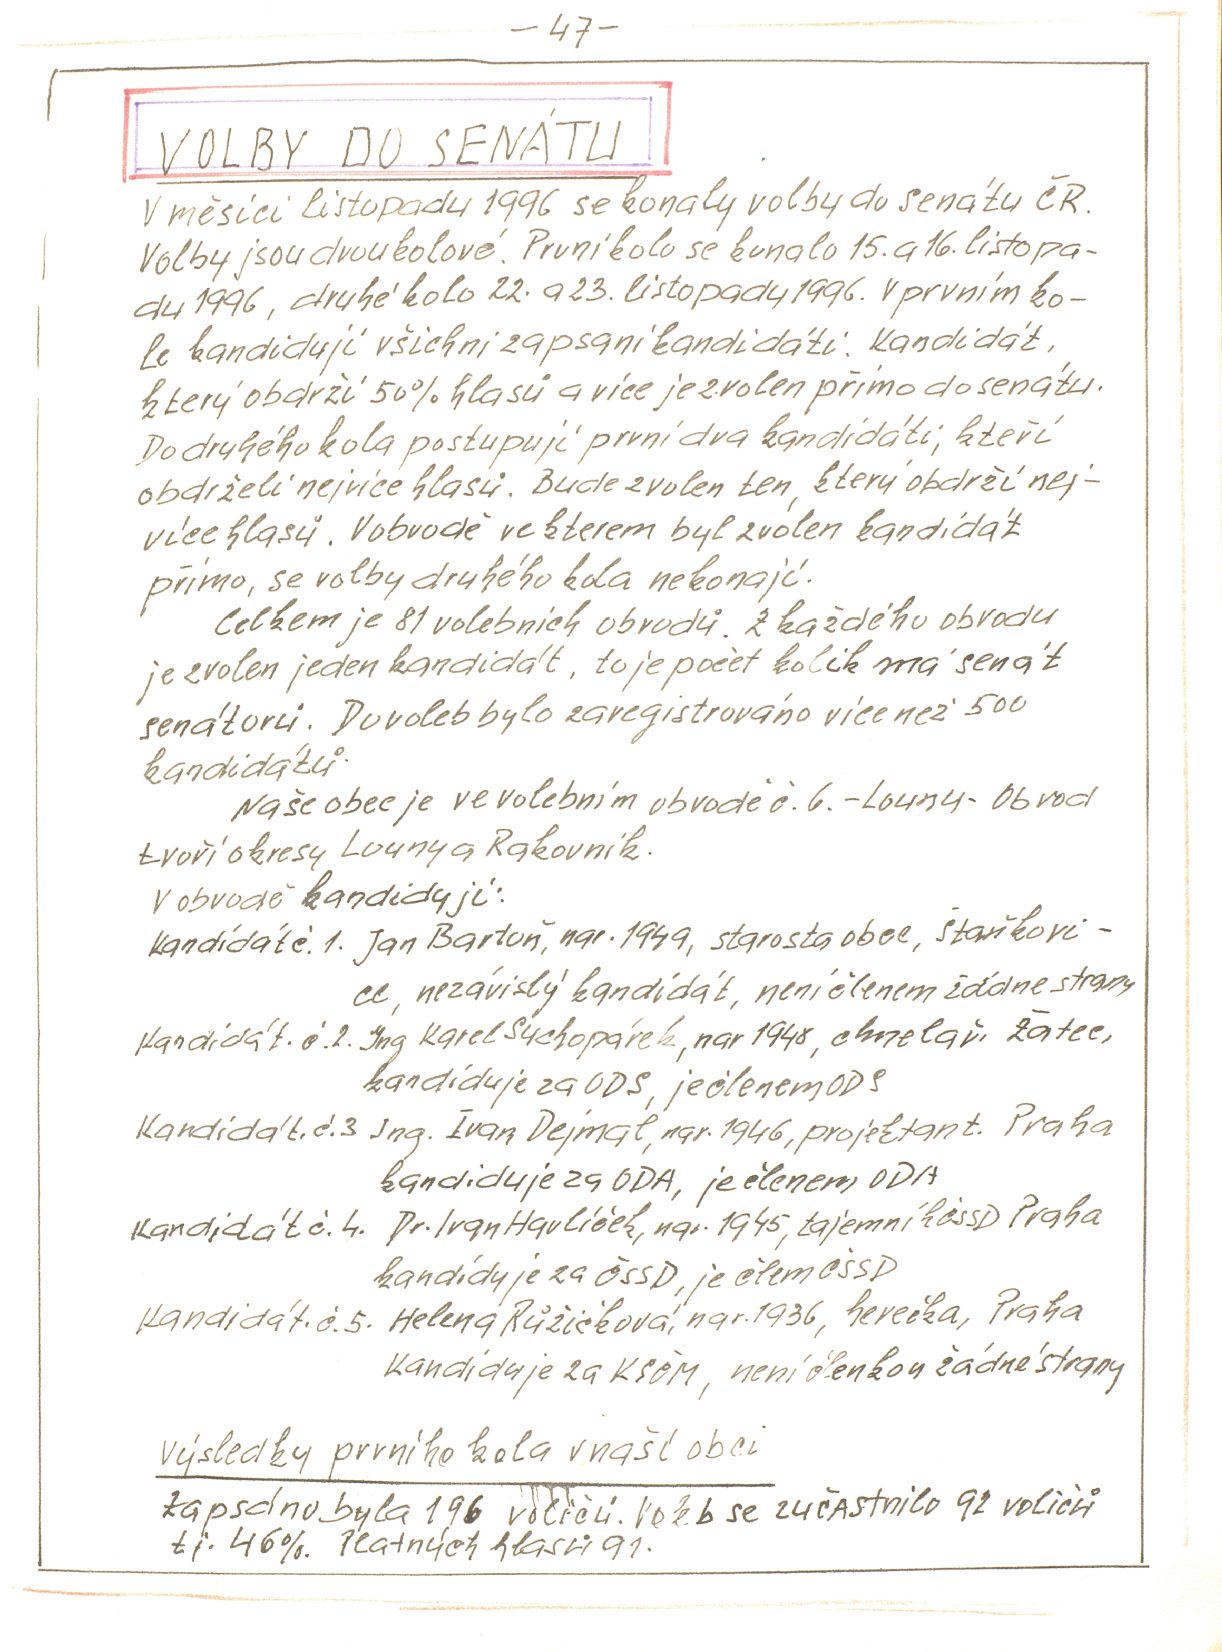 - 47 -
VOLBY DO SENÁTU
V měsíci listopadu 1996 se konaly volby do senátu ČR.
Volby jsou dvoukolové. První kolo se konalo 15. a 16. listopa-
du 1996, druhé kolo 22. a 23. listopadu 1996. V prvním ko-
le kandidují všichni zapsaní kandidáti. Kandidát,
který obdrží 50% hlasů a více je zvolen přímo do senátu.
Do druhého kola postupují první dva kandidáti, kteří
obdrželi nejvíce hlasů. Bude zvolen ten, který obdrží nej-
více hlasů. V obvodě ve kterem byl zvolen kandidát
přímo, se volby druhého kola nekonají.
Celkem je 81 volebních obvodů. Z každého obvodu
je zvolen jeden kandidát, to je počet kolik má senát
senátorů. Do voleb bylo zaregistrováno více než 500
kandidátů.
Naše obec je ve volebním obvodě č. 6. - Louny - Obvod
tvoří okresy Louny a Rakovník.
V obvodě kandidují:
Kandidát č. 1. Jan Bartoň, nar. 1949, starosta obce, Staňkovi-
ce, nezávislý kandidát, není členem žádne strany
Kandidát. č. 2. Ing Karel Suchopárek, nar 1948, chmelař. Žatec,
kandiduje za ODS, je členem ODS
Kandidát. č. 3 Ing. Ivan Dejmal, nar. 1946, projektant. Praha
kandiduje za ODA, je členem ODA
Kandidát č. 4. Dr. Ivan Havlíček, nar. 1945, tajemník ČSSD Praha
kandiduje za ČSSD, je člem ČSSD
Kandidát. č. 5. Helena Růžičková, nar. 1936, herečka, Praha
Kandiduje za KSČM, není členkou žádné strany
Výsledky prvního kola v naší obci
Zapsáno byla 196 voličů. Voleb se zučAstnilo 92 voličů
tj. 46%. Platných hlasů 91.